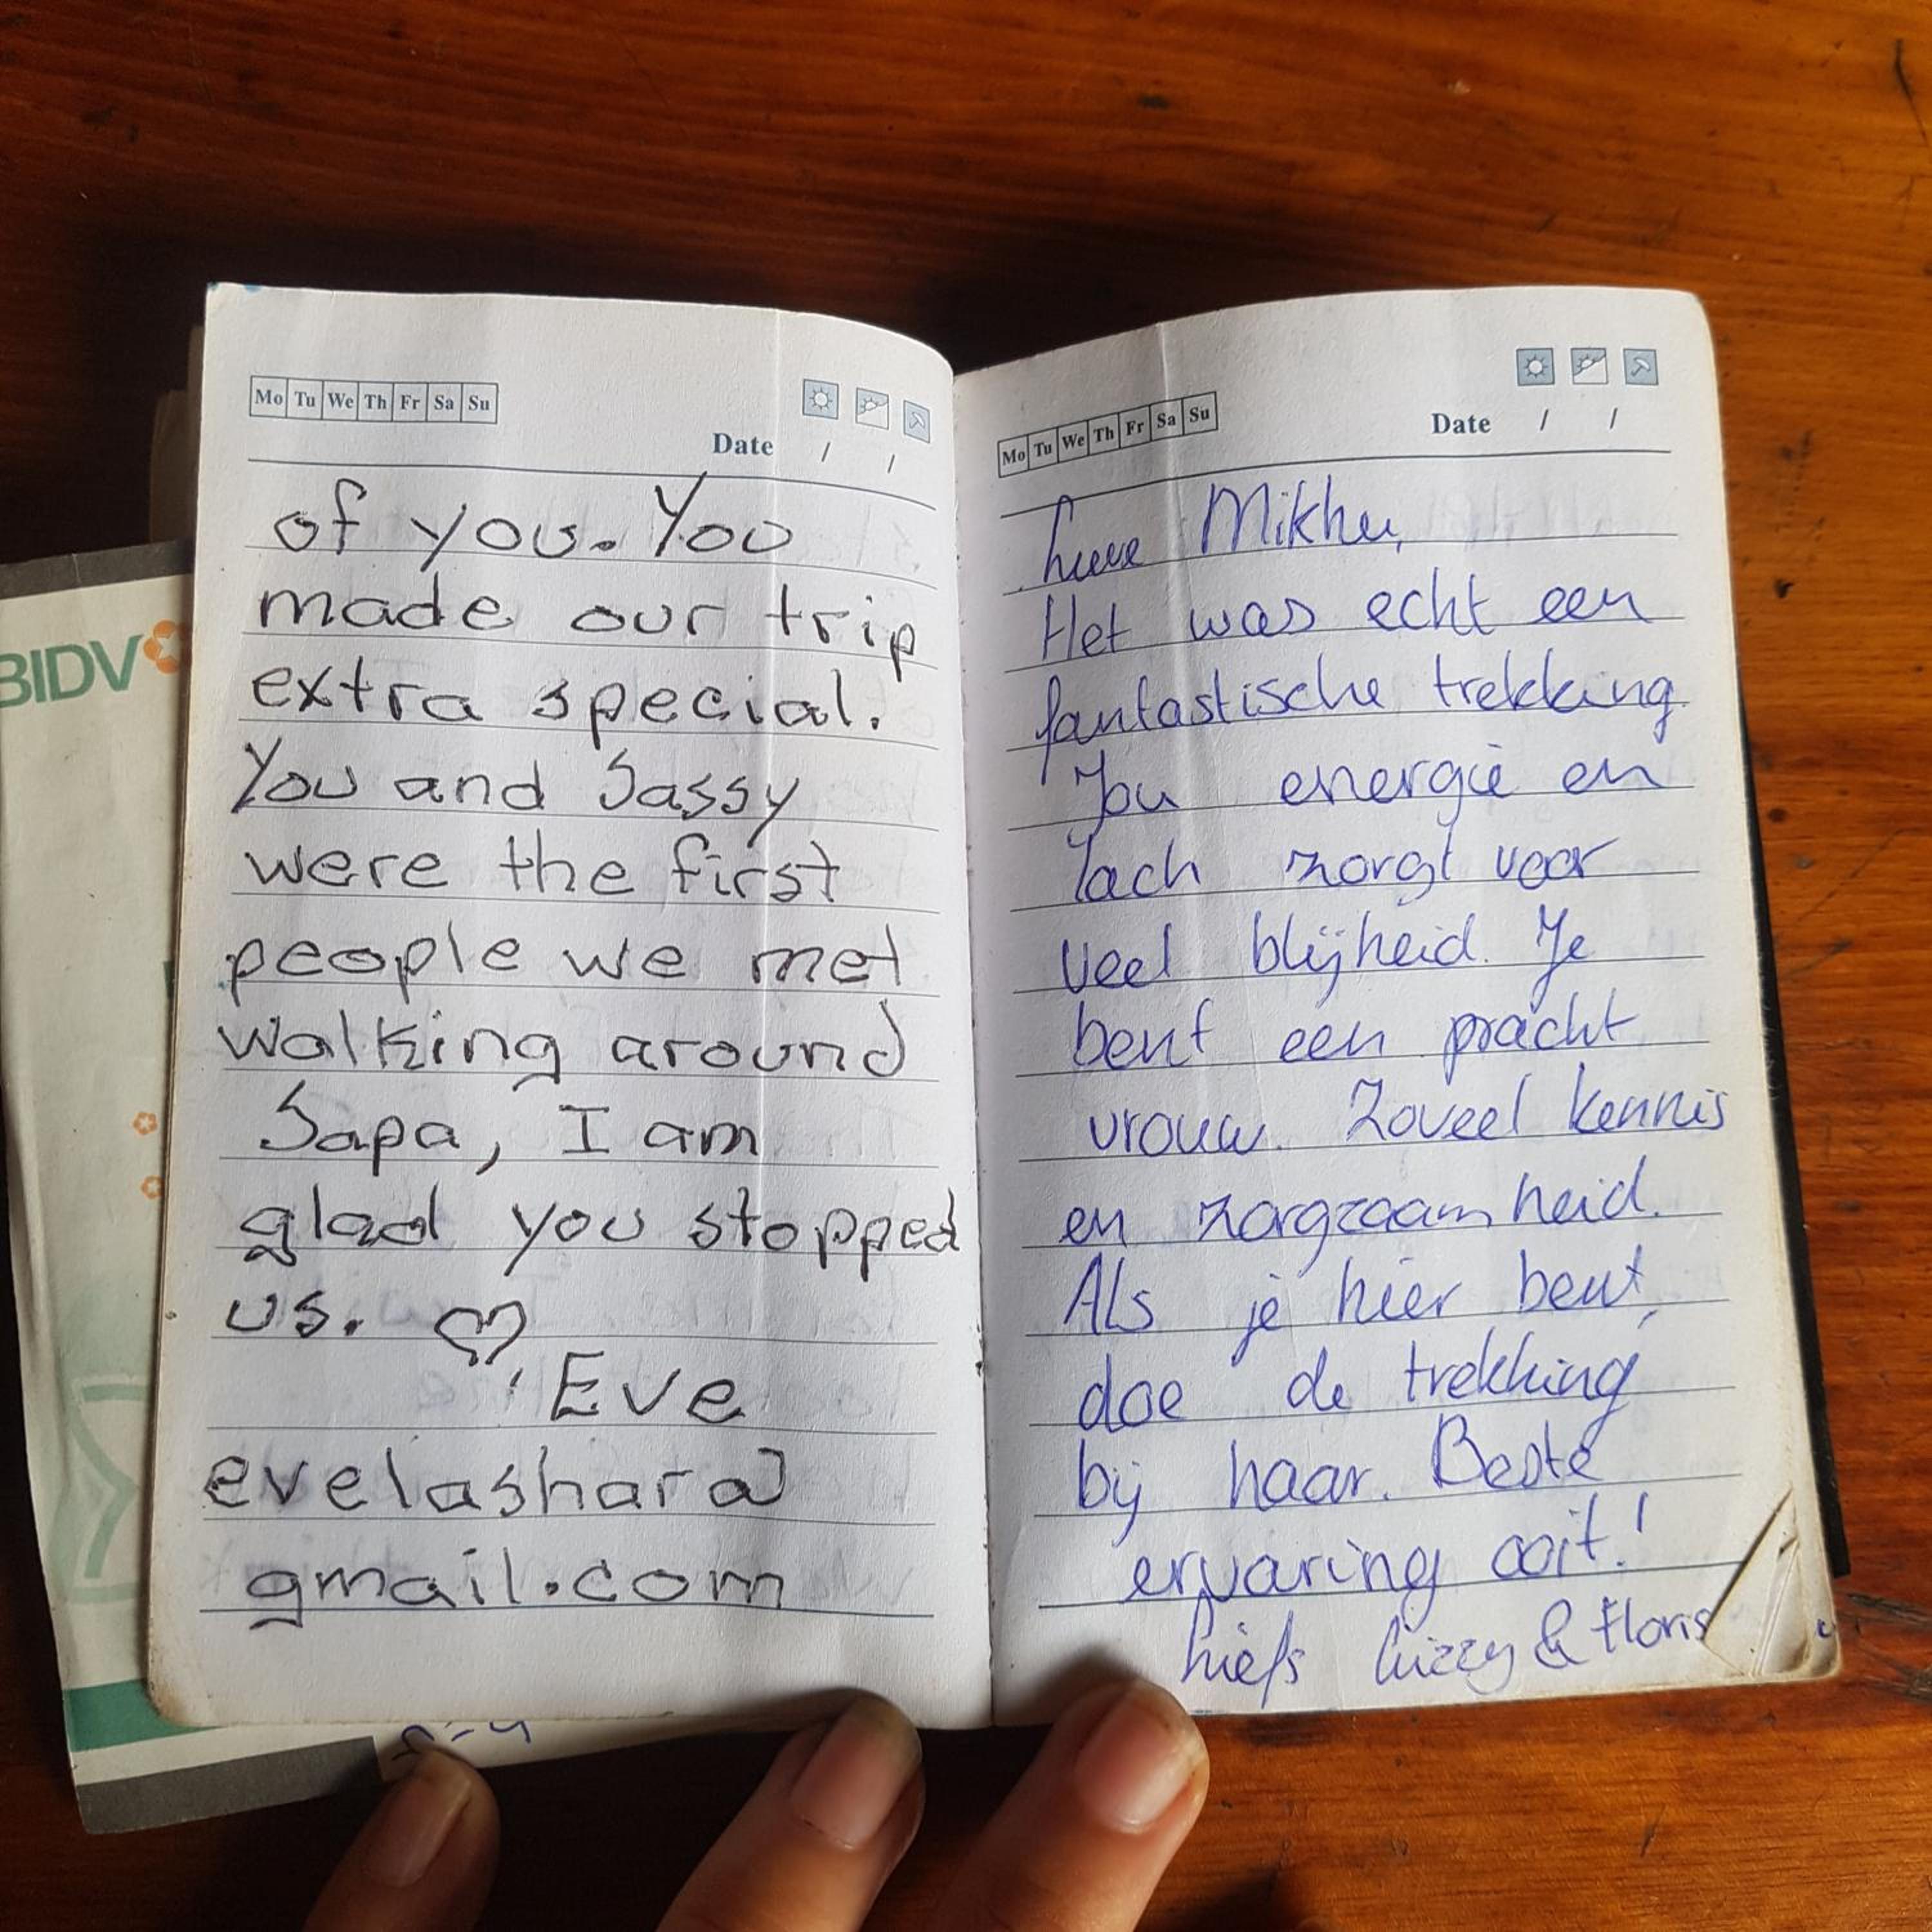 Mo Tu We Th Fr Sa Su
Date / /
of you. You
made our trip
extra special.
You and Sassy
were the first
people we met
walking around
Sapa, I am
glad you stopped
us. ♡
Eve
evelashara@
gmail.com
Mo Tu We Th Fr Sa Su
Date / /
Lieve Mikhu,
Het was echt een
fantastische trekking.
Jou energie en
lach zorgt voor
veel blijheid. Je
bent een pracht
vrouw. Zoveel kennis
en zorgzaamheid.
Als je hier bent,
doe de trekking
bij haar. Beste
ervaring ooit!
liefs Lizzy & Floris
BIDV